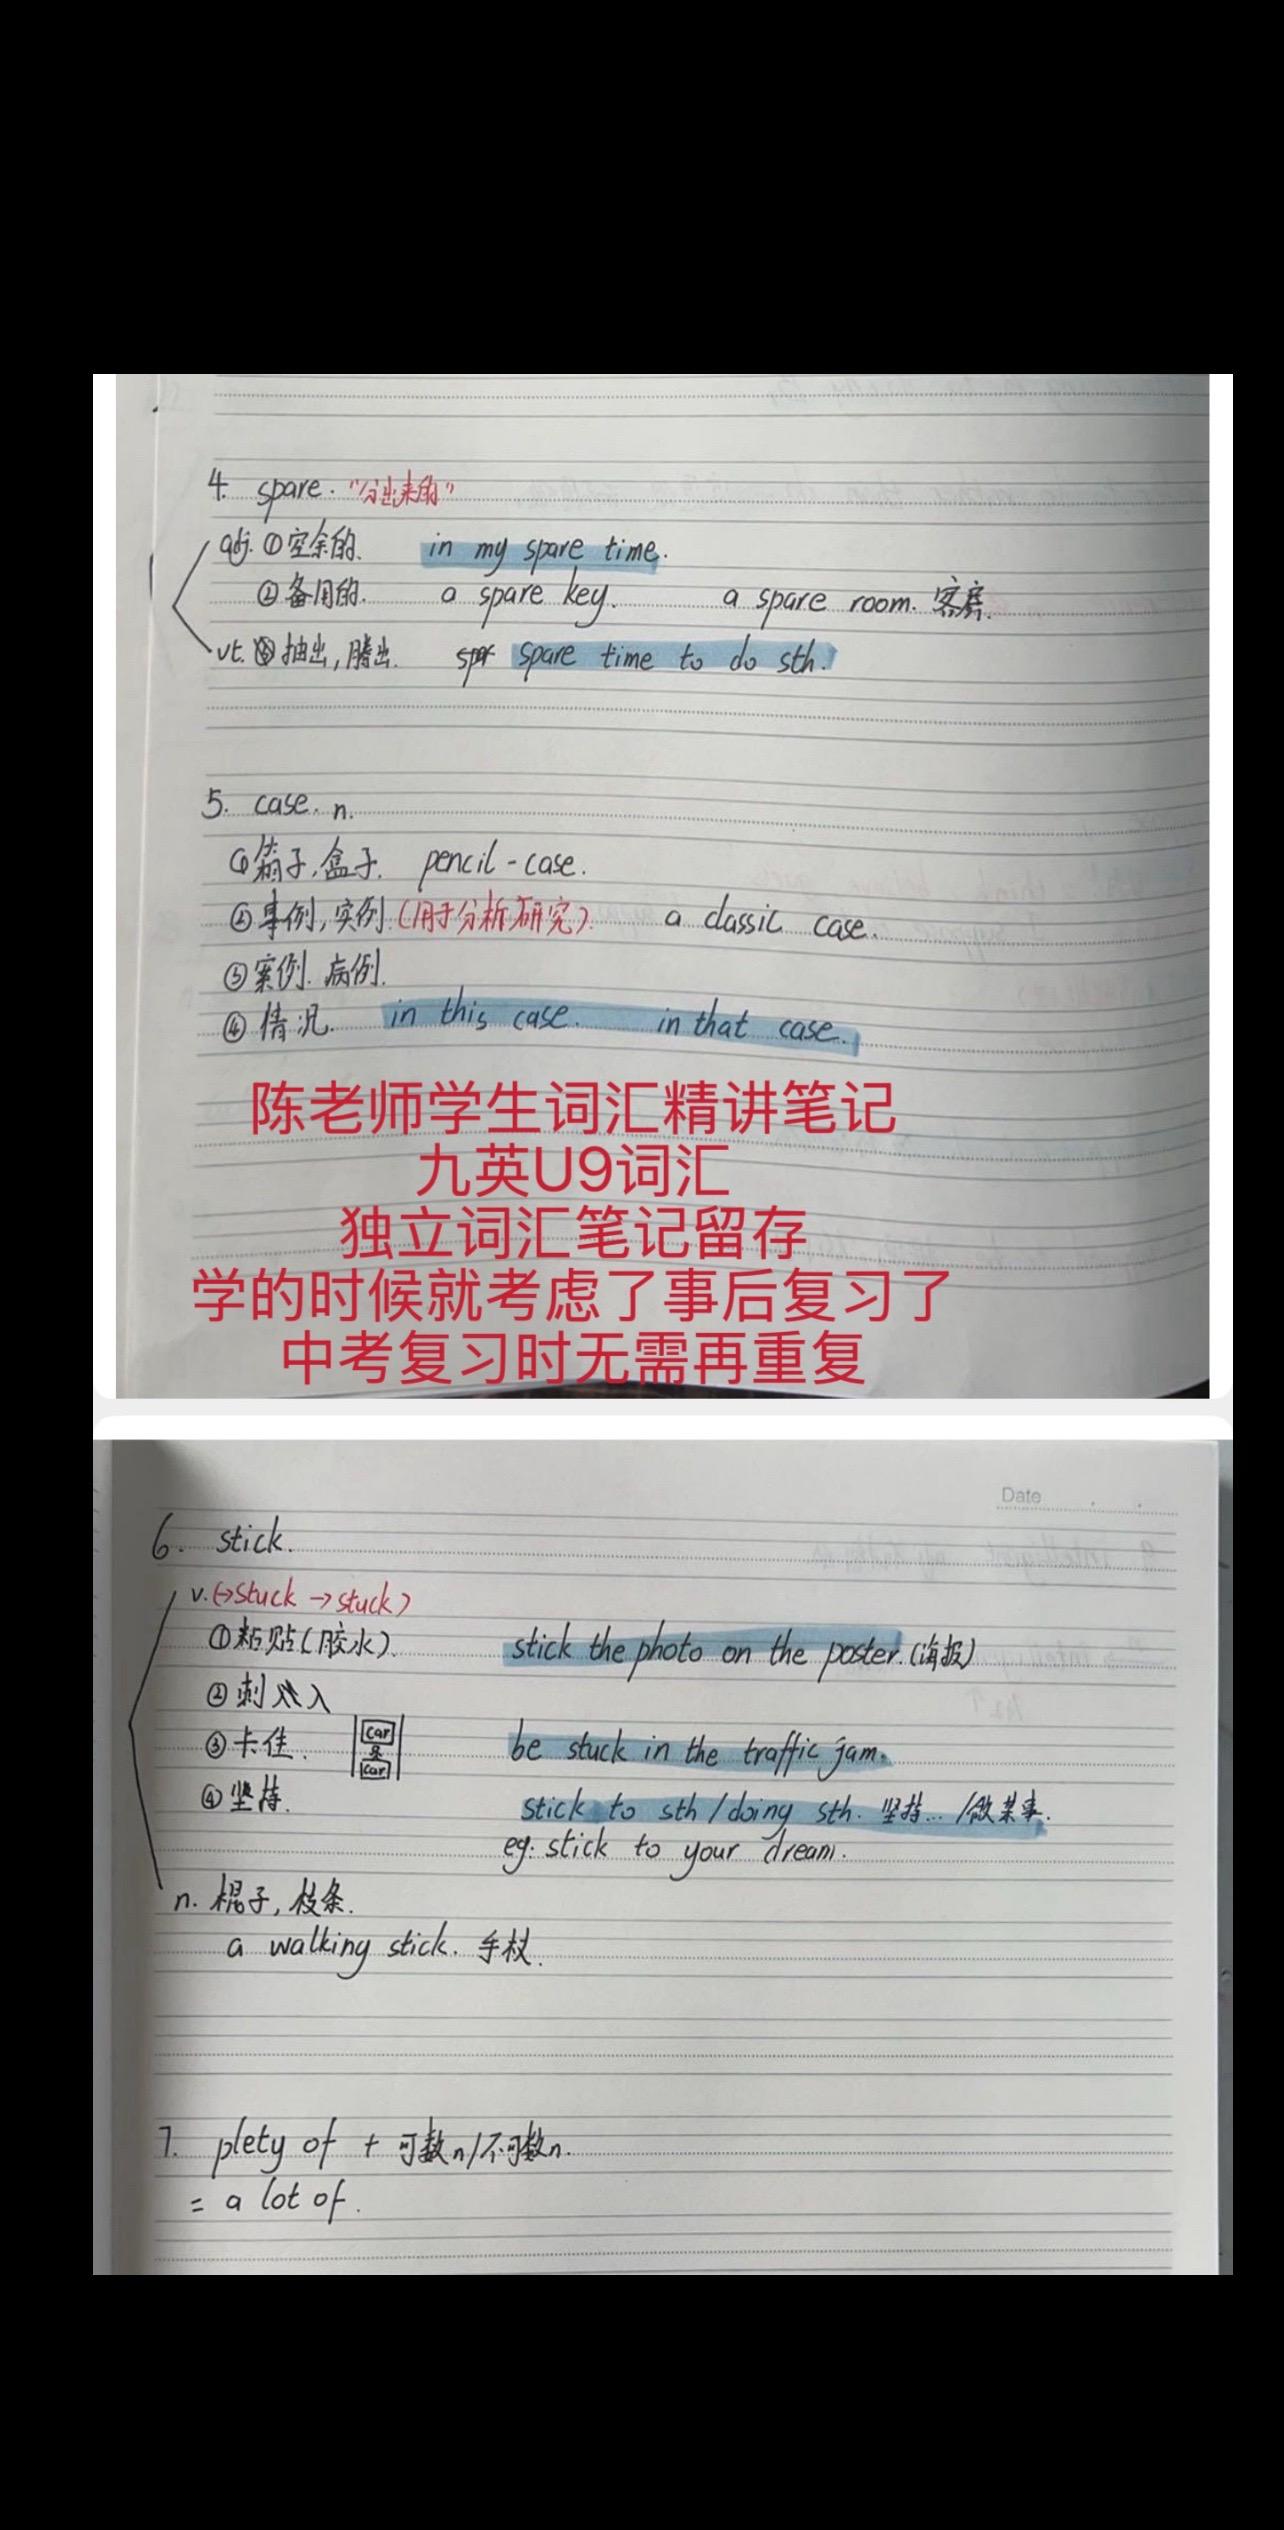 4. spare. "分出来的"
adj. ①空余的. in my spare time.
②备用的. a spare key. a spare room. 客房.
vt. 抽出,腾出. spare time to do sth.
5. case. n.
①箱子,盒子. pencil-case.
②事例,实例(用于分析研究). a classic case.
③案例. 病例.
④情况. in this case. in that case.
陈老师学生词汇精讲笔记
九英U9词汇
独立词汇笔记留存
学的时候就考虑了事后复习了
中考复习时无需再重复
Date . .
6. stick.
v.(→stuck →stuck)
①粘贴(胶水). stick the photo on the poster.(海报)
②刺入
③卡住. car 我 car be stuck in the traffic jam.
④坚持. stick to sth/doing sth. 坚持.../做某事.
eg: stick to your dream.
n. 棍子,枝条.
a walking stick. 手杖.
7. plety of + 可数n/不可数n.
= a lot of.